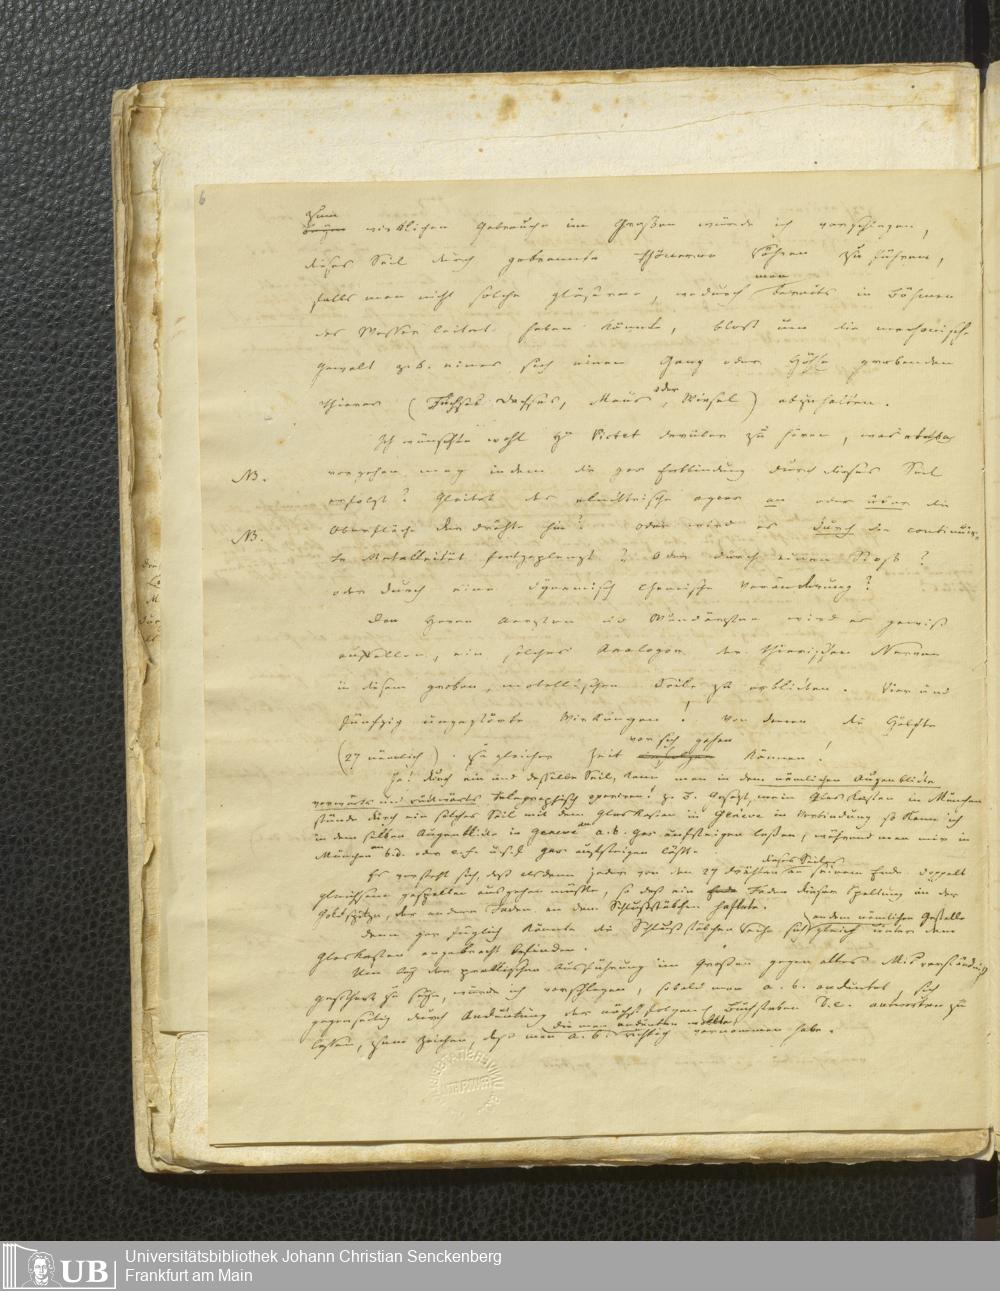 6
zum
wirklichen Gebrauche im Großen würde ich vorschlagen,
dieses Seil durch gebrannte thönerne Röhren zu führen,
man
falls man nicht solche gläserne, wodurch bereits in Böhmen
das Wasser leitet haben könnte, bloß um die mechanische
Gewalt z.B. eines sich einen Gang oder Höhle grabenden
oder
Thieres (Fuchses Dachses, Maus, Wiesel) abzuhalten.
Ich wünschte wohl Hr Pictet darüber zu hören, was
NB.
vorgehen mag indem die gas Entbindung durch dieses Seil
erfolgt? Gleitet das elecktrische agens an oder über die
NB.
Oberfläche der Drähte hin? oder wird es durch die
Metalleität fortgepflanzt? Oder durch einen Stoß?
oder durch eine dynamisch chemische Veränderung?
Den Herren Aerzten u Wundärzten wird es gewiß
auffallen, ein solches Analogon der thierischen Nerven
in diesem groben, metallischen Seile zu erblicken. Vier und
fünfzig ungestörte Wirkungen, von denen die Hälfte
vor sich gehen
(27 nämlich) zu gleicher Zeit können.
Ja! durch ein und dasselbe Seil, kann man in dem nämlichen Augenblicke
vorwärts und rückwärts telegraphisch operiren! z. B. Gesetzt, mein Glaskasten in München
stünde durch ein solches Seil mit dem Glaskasten in Genève in Verbindung so kann ich
in dem selben Augenblicke in Genève an a.b. gas aufsteigen lassen, während man mir in
München an c.d. oder e.f. u.s.f. gas aufsteigen läßt.
Es versteht sich, daß alsdann jeder von den 27 Drähten
dieses Seiles
an seinem Ende doppelt
gleichsam gespalten ausgehen müßte, so daß ein Faden dieser Spaltung in der
Goldspitze, der andere Faden an dem Schlußstäbchen haftete.
an dem nämlichen Gestelle
denn gar füglich könnte die Schlußstäbchen Reihe sich zugleich unter dem
Glaskasten angebracht befinden.
Um bey der praktischen Ausführung im Großen gegen alles Misverständniß
gesichert zu seyn, würde ich vorschlagen, sobald man a. b. andeutet, sich
gegenseitig durch Andeutung der nächst folgenden Buchstaben b.c. antworten zu
die man andeuten wollte
lassen, zum Zeichen, daß man a.b. richtig vernommen habe.
Universitätsbibliothek Johann Christian Senckenberg
UB Frankfurt am Main